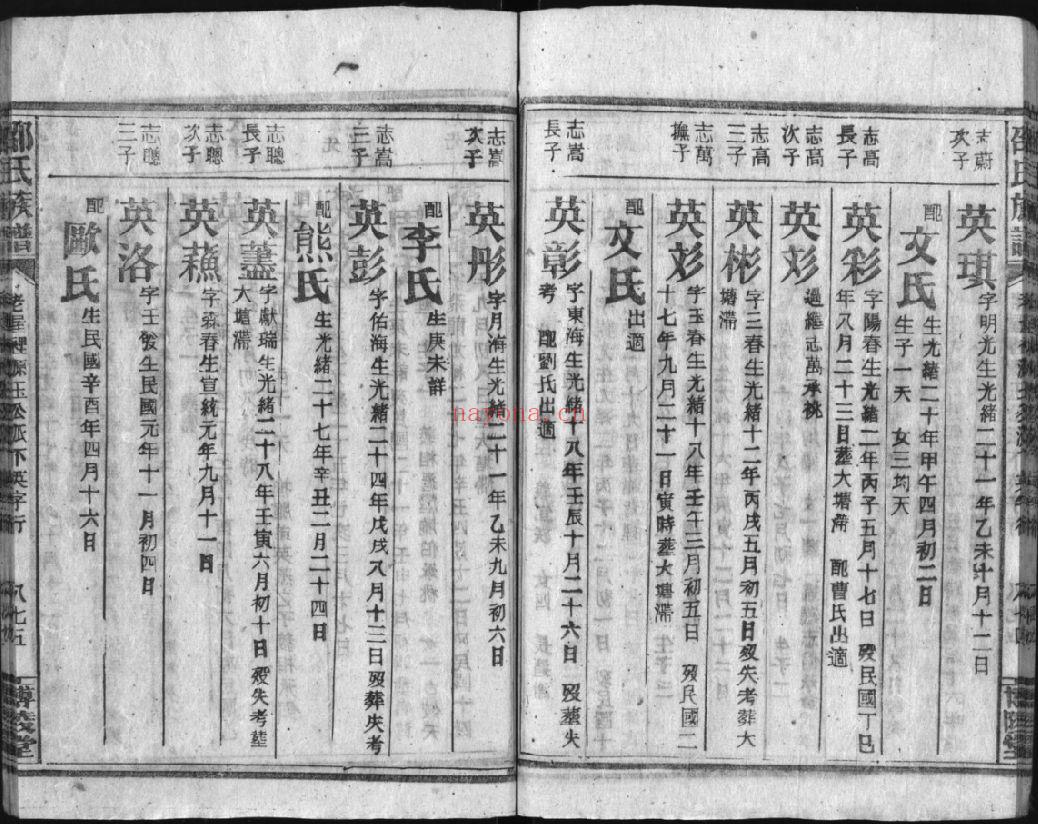 志蔚
次子
英琪
字明光生光緒二十一年乙未十月十二日
配
文氏
生光緒二十年甲午四月初二日
生子一夭 女三均夭
志高
長子
英彩
字陽春生光緒二年丙子五月十七日 歿民國丁巳
年八月二十三日葬大塘滯 配曹氏出適
志高
次子
英彣
過繼志萬承祧
志高
三子
英彬
字三春生光緒十二年丙戌五月初五日歿失考葬大
塘滯
志萬
撫子
英彣
字玉春生光緒十八年壬午三月初五日 歿民國二
十七年九月二十一日寅時葬大塘滯
配
文氏
出適
志嵩
長子
英彰
字東海生光緒十八年壬辰十月二十六日 歿塟失
考 配劉氏出適
志嵩
次子
英彤
字月海生光緒二十一年乙未九月初六日
配
李氏
生庚未詳
志嵩
三子
英彭
字佑海生光緒二十四年戊戌八月十三日歿葬失考
配
熊氏
生光緒二十七年辛丑二月二十四日
志聰
長子
英藎
字獻瑞生光緒二十八年壬寅六月初十日歿失考塟
大塘滯
志聰
次子
英蘓
字春生宣統元年九月十一日
志聰
三子
英洛
字壬俊生民國元年十一月初四日
配
歐氏
生民國辛酉年四月十六日
氏族譜
派下英字行
八七五
博陵堂
nayona.cn